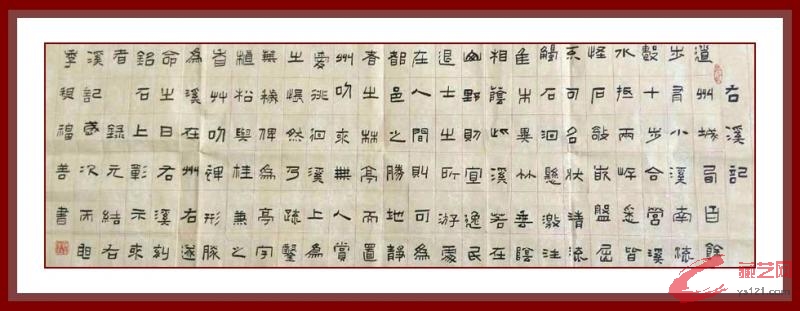 右溪記
道州城西百餘
步有小溪南流
數十步合營溪
水抵兩岸悉皆
怪石欹嵌盤屈
不可名狀清流
觸石洄懸激注
佳木異竹垂陰
相蔭此溪若在
山野則宜逸民
退士之所游處
在人間則可為
都邑之勝地靜
者之林亭而置
州以來無人賞
愛徘徊溪上為
之悵然乃疏鑿
蕪穢俾為亭宇
植松與桂兼之
香艸以裨形勝
為溪在州右遂
命之曰右溪刻
銘石上彰示來
者 錄元結右
溪記歲次丙申
季福善書
藏艺网
ys121.com